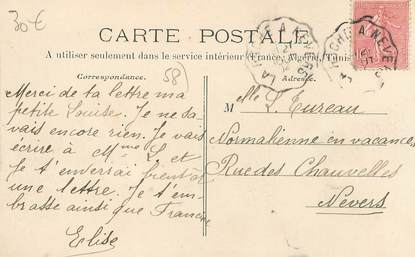 30€
CARTE POSTALE
A utiliser seulement dans le service intérieur (France, Algérie, Tunis
Correspondance.
58
Adresse.
Merci de ta lettre ma
petite Louise. Je ne sa-
vais encore rien. Je vais
écrire à Mme L. et
je t'enverrai bientôt
une lettre. Je t'em-
brasse ainsi que France
Elise
Melle L. Tureau
Normalienne en vacances
Rue des Chauvelles
Nevers
A NEVERS
A NEVE